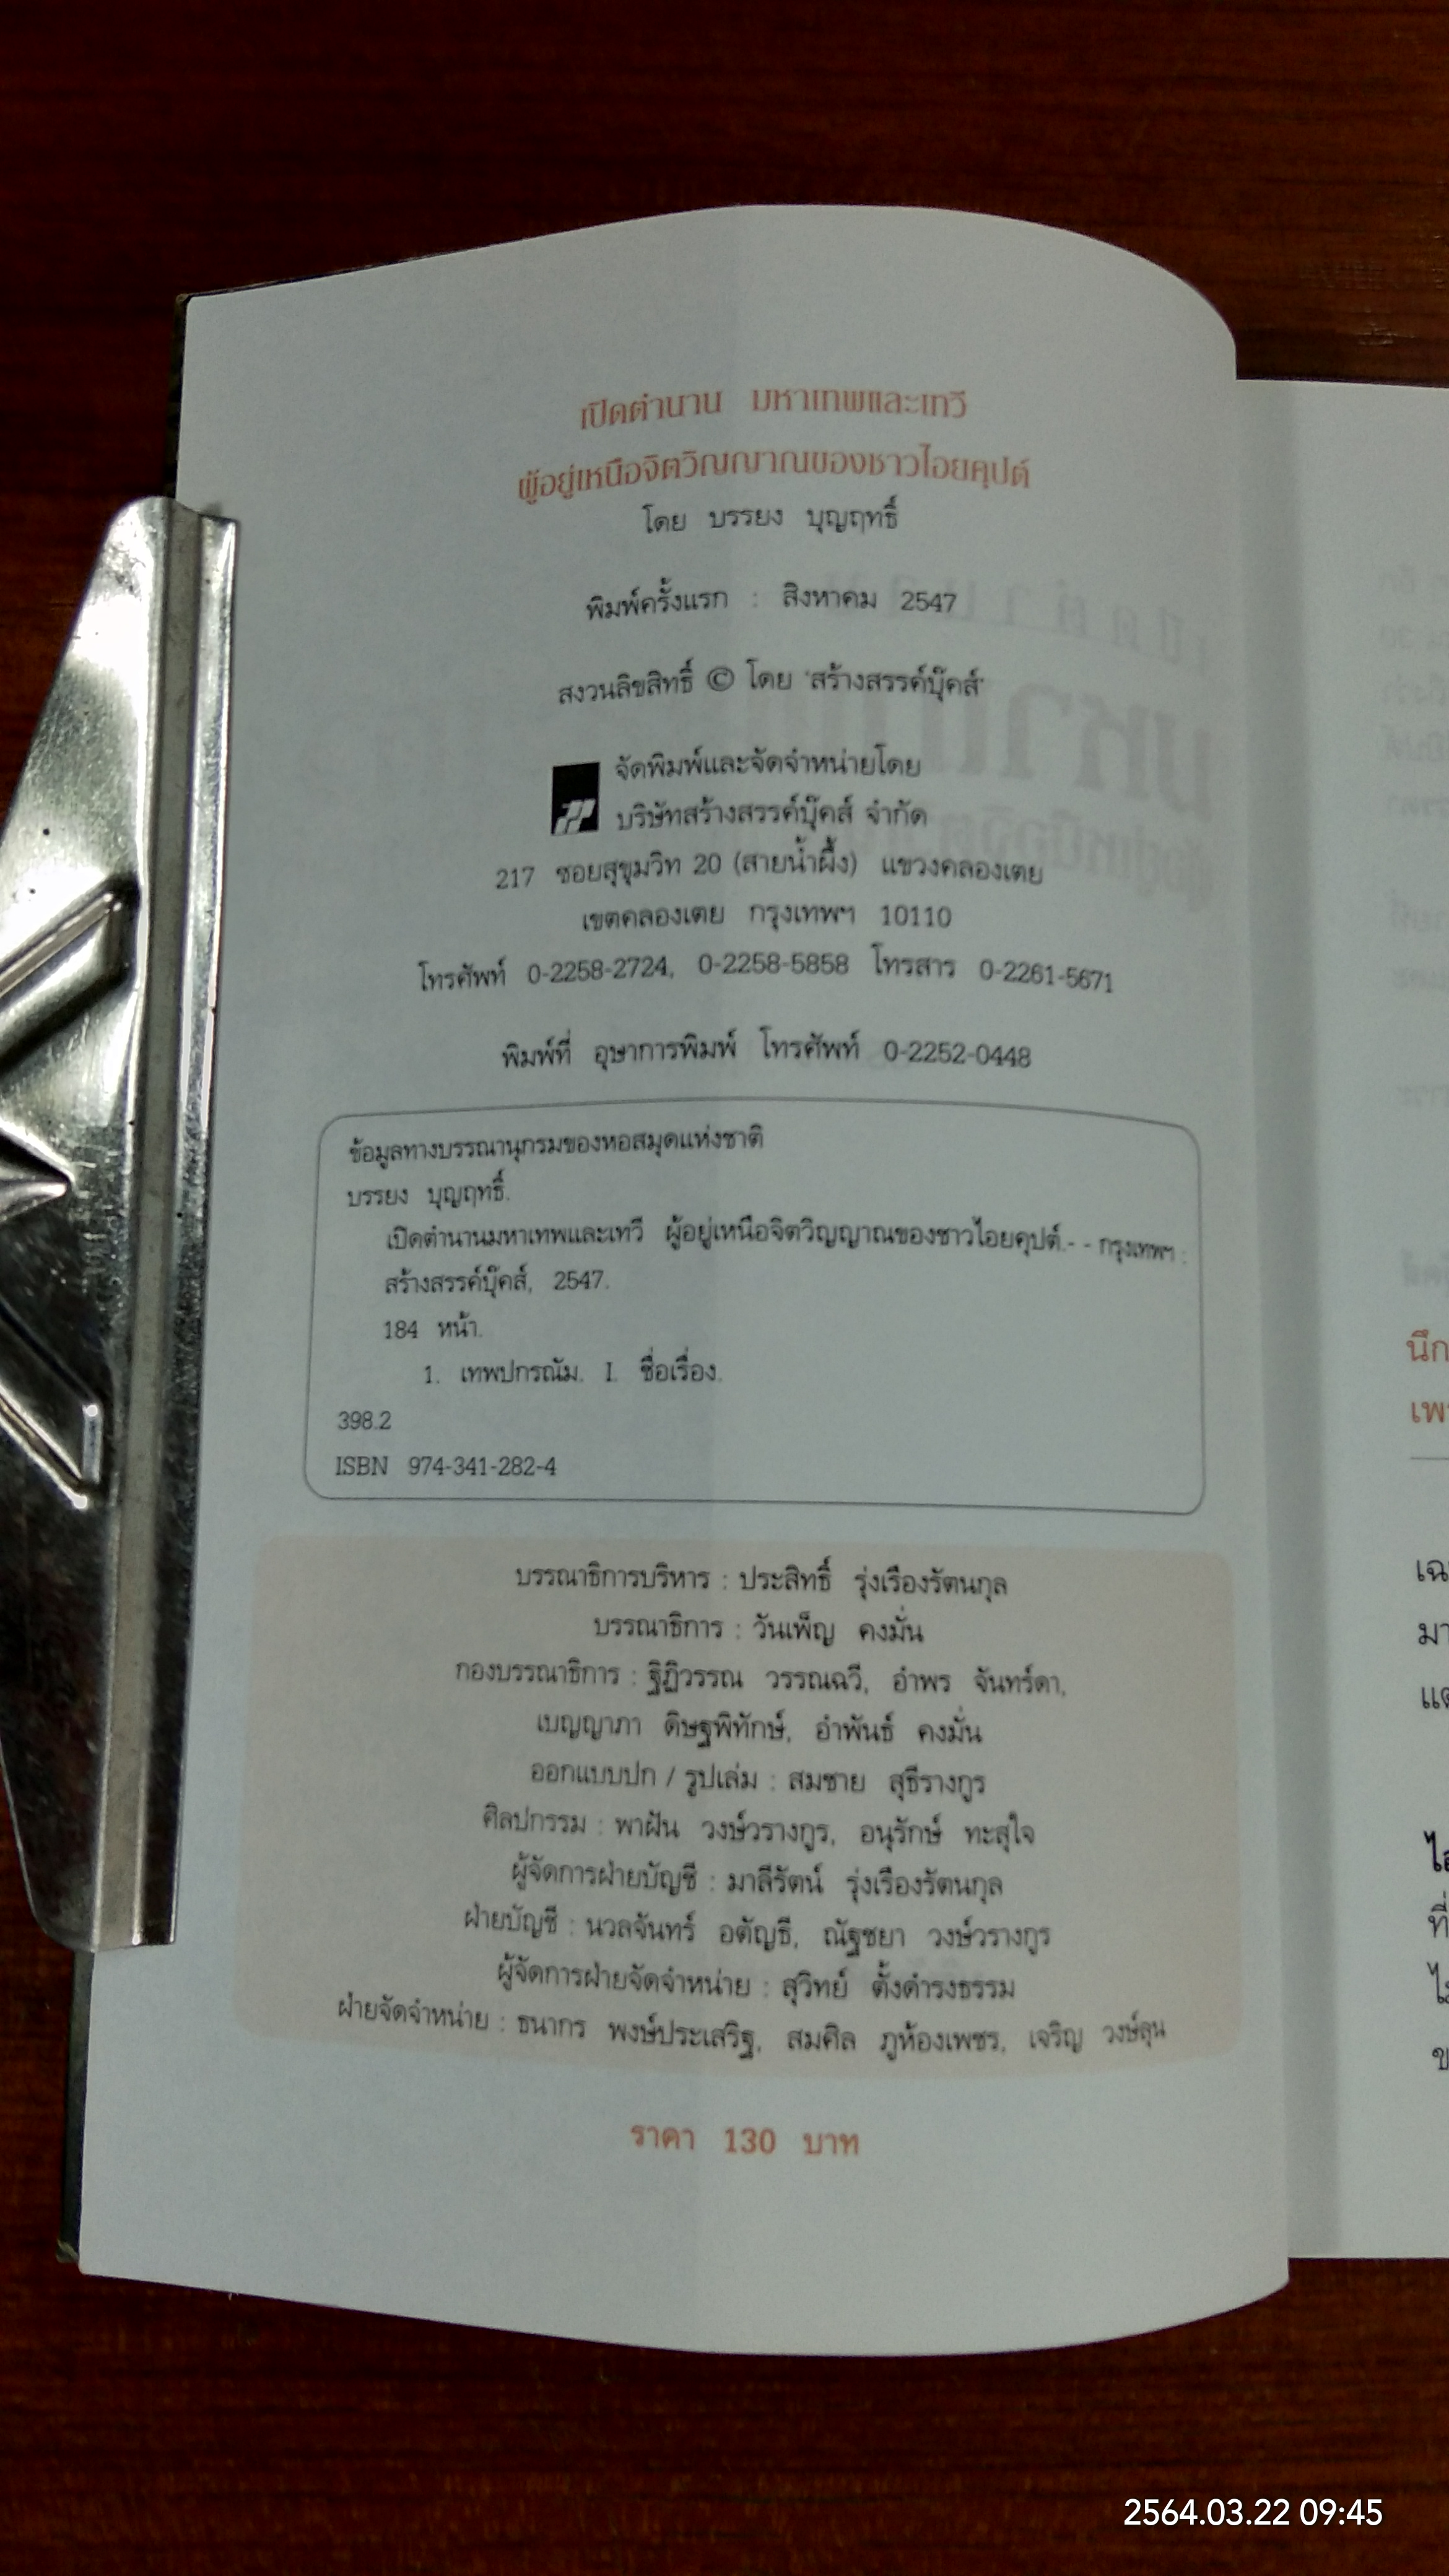 เปิดตำนาน มหาเทพและเทวี
ผู้อยู่เหนือจิตวิญญาณของชาวไอยคุปต์
โดย บรรยง บุญฤทธิ์
พิมพ์ครั้งแรก : สิงหาคม 2547
สงวนลิขสิทธิ์ © โดย "สร้างสรรค์บุ๊คส์"
จัดพิมพ์และจัดจำหน่ายโดย
บริษัทสร้างสรรค์บุ๊คส์ จำกัด
217 ซอยสุขุมวิท 20 (สายน้ำผึ้ง) แขวงคลองเตย
เขตคลองเตย กรุงเทพฯ 10110
โทรศัพท์ 0-2258-2724, 0-2258-5858 โทรสาร 0-2261-5671
พิมพ์ที่ อุษาการพิมพ์ โทรศัพท์ 0-2252-0448
ข้อมูลทางบรรณานุกรมของหอสมุดแห่งชาติ
บรรยง บุญฤทธิ์.
เปิดตำนานมหาเทพและเทวี ผู้อยู่เหนือจิตวิญญาณของชาวไอยคุปต์.- - กรุงเทพฯ :
สร้างสรรค์บุ๊คส์, 2547.
184 หน้า.
1. เทพปกรณัม. I. ชื่อเรื่อง.
398.2
ISBN 974-341-282-4
บรรณาธิการบริหาร : ประสิทธิ์ รุ่งเรืองรัตนกุล
บรรณาธิการ : วันเพ็ญ คงมั่น
กองบรรณาธิการ : ฐิฏิวรรณ วรรณฉวี, อำพร จันทร์ดา,
เบญญาภา ดิษฐพิทักษ์, อำพันธ์ คงมั่น
ออกแบบปก / รูปเล่ม : สมชาย สุธีรางกูร
ศิลปกรรม : พาฝัน วงษ์วรางกูร, อนุรักษ์ ทะสุใจ
ผู้จัดการฝ่ายบัญชี : มาลีรัตน์ รุ่งเรืองรัตนกุล
ฝ่ายบัญชี : นวลจันทร์ อตัญธี, ณัฐชยา วงษ์วรางกูร
ผู้จัดการฝ่ายจัดจำหน่าย : สุวิทย์ ตั้งดำรงธรรม
ฝ่ายจัดจำหน่าย : ธนากร พงษ์ประเสริฐ, สมศิล ภูห้องเพชร, เจริญ วงษ์ลุน
ราคา 130 บาท
2564.03.22 09:45